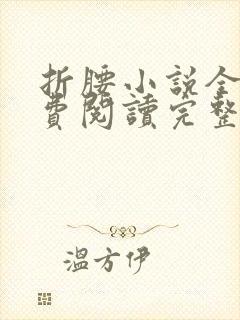 折腰小說全
費閱讀完整
溫方伊